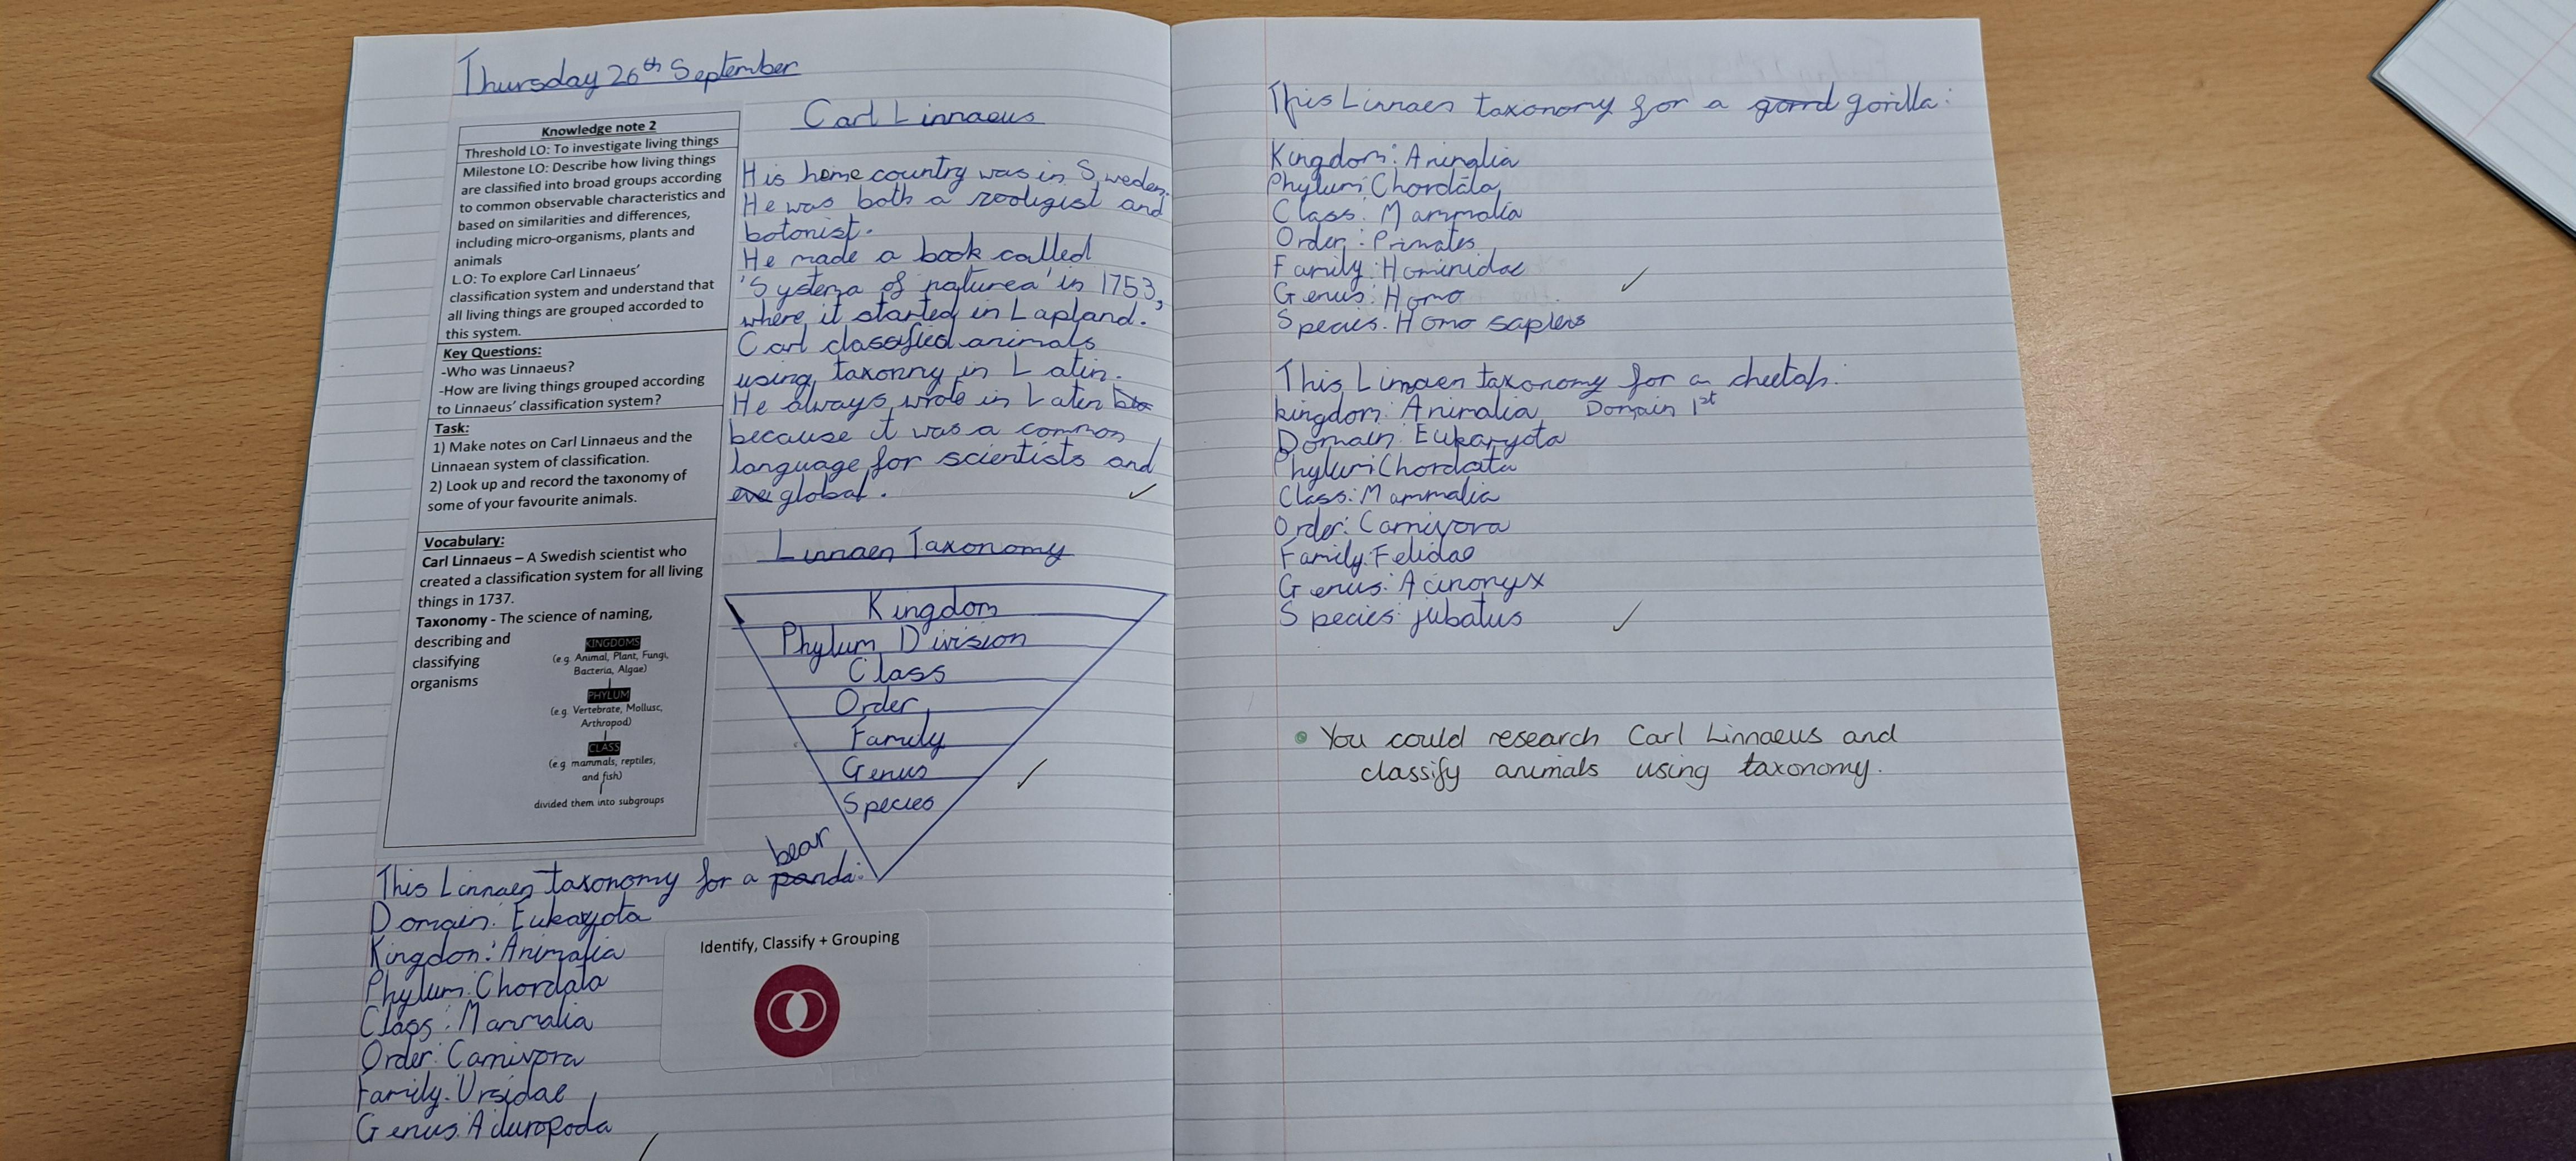 Thursday 26th September
Knowledge note 2
Threshold LO: To investigate living things
Milestone LO: Describe how living things
are classified into broad groups according
to common observable characteristics and
based on similarities and differences,
including micro-organisms, plants and
animals
L.O: To explore Carl Linnaeus'
classification system and understand that
all living things are grouped accorded to
this system.
Key Questions:
-Who was Linnaeus?
-How are living things grouped according
to Linnaeus' classification system?
Task:
1) Make notes on Carl Linnaeus and the
Linnaean system of classification.
2) Look up and record the taxonomy of
some of your favourite animals.
Vocabulary:
Carl Linnaeus – A Swedish scientist who
created a classification system for all living
things in 1737.
Taxonomy - The science of naming,
describing and
classifying
organisms
KINGDOMS
(e.g. Animal, Plant, Fungi,
Bacteria, Algae)
PHYLUM
(e.g. Vertebrate, Mollusc,
Arthropod)
CLASS
(e.g. mammals, reptiles,
and fish)
divided them into subgroups
Carl Linnaeus
His home country was in Sweden.
He was both a zooligist and
botonist.
He made a book called
'Systema of naturea' in 1753,
where it started in Lapland.
Carl classified animals
using taxonny in Latin.
He always wrote in Laten
because it was a common
language for scientists and
eve global.
Linnaen Taxonomy
Kingdom
Phylum Division
Class
Order
Family
Genus
Species
bear
This Linnaen taxonomy for a panda:
Domain: Eukaryota
Kingdon: Animalia
Phylum: Chordata
Class: Mammalia
Order: Carnivora
Family: Ursidae
Genus: Ailuropoda
Identify, Classify + Grouping
This Linnaen taxonomy for a gorilla:
Kingdom: Animalia
Phylum: Chordata
Class: Mammalia
Order: Primates
Family: Hominidae
Genus: Homo
Species: Homo sapiens
This Linnaen taxonomy for a cheetah:
kingdom: Animalia Domain 1st
Domain: Eukaryota
Phylum: Chordata
Class: Mammalia
Order: Carnivora
Family: Felidae
Genus: Acinonyx
Species: jubatus
• You could research Carl Linnaeus and
classify animals using taxonomy.